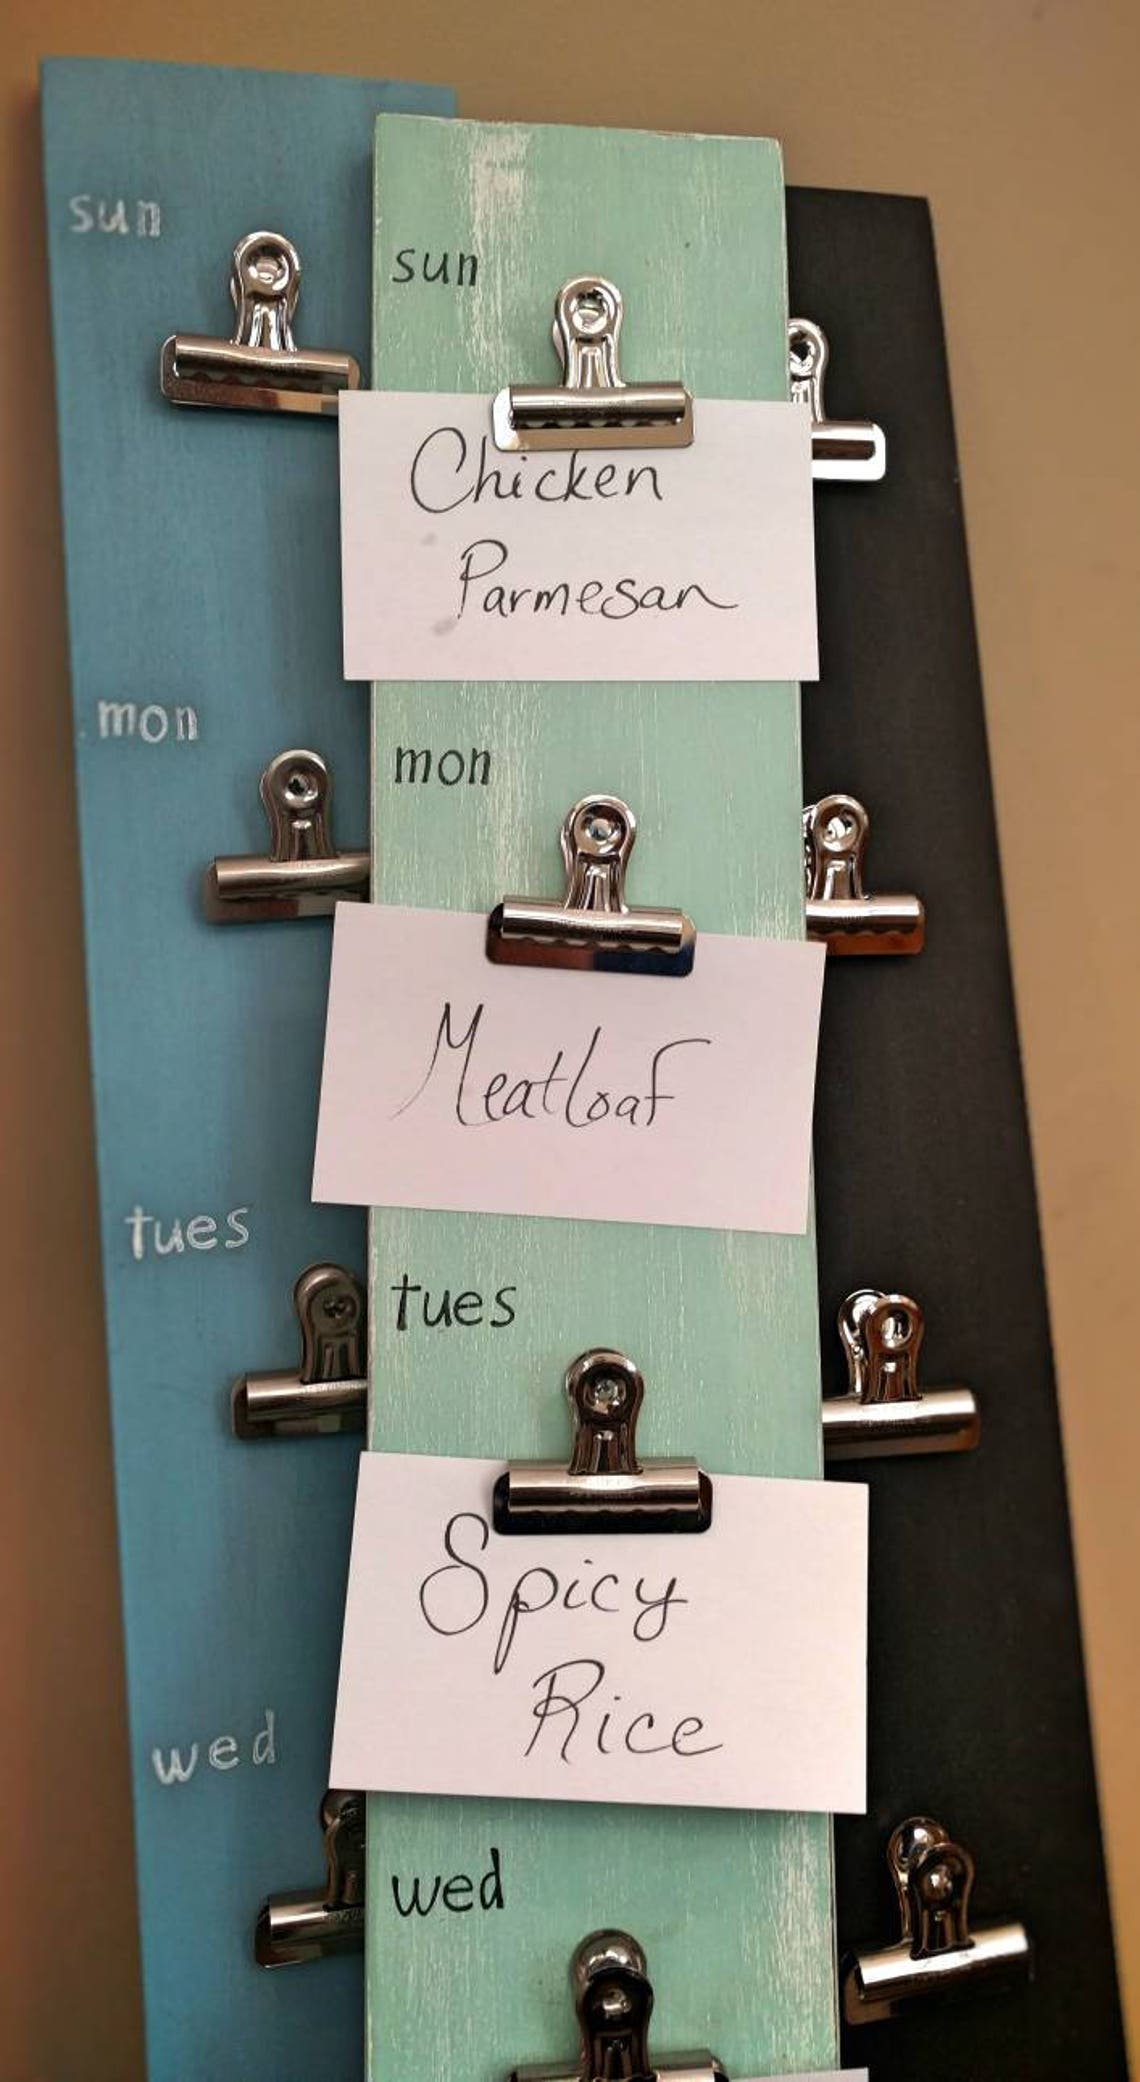 sun
mon
tues
wed
sun
Chicken
Parmesan
mon
Meatloaf
tues
Spicy
Rice
wed